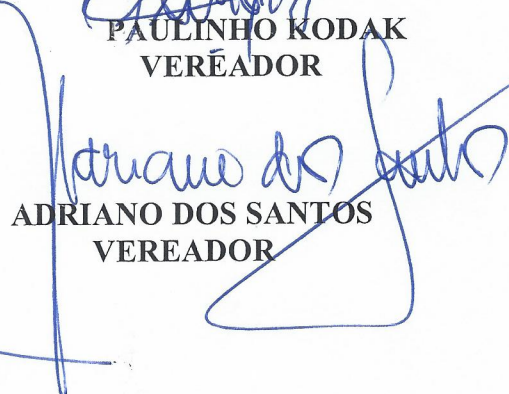 PAULINHO KODAK
VEREADOR
Adriano dos Santos
ADRIANO DOS SANTOS
VEREADOR